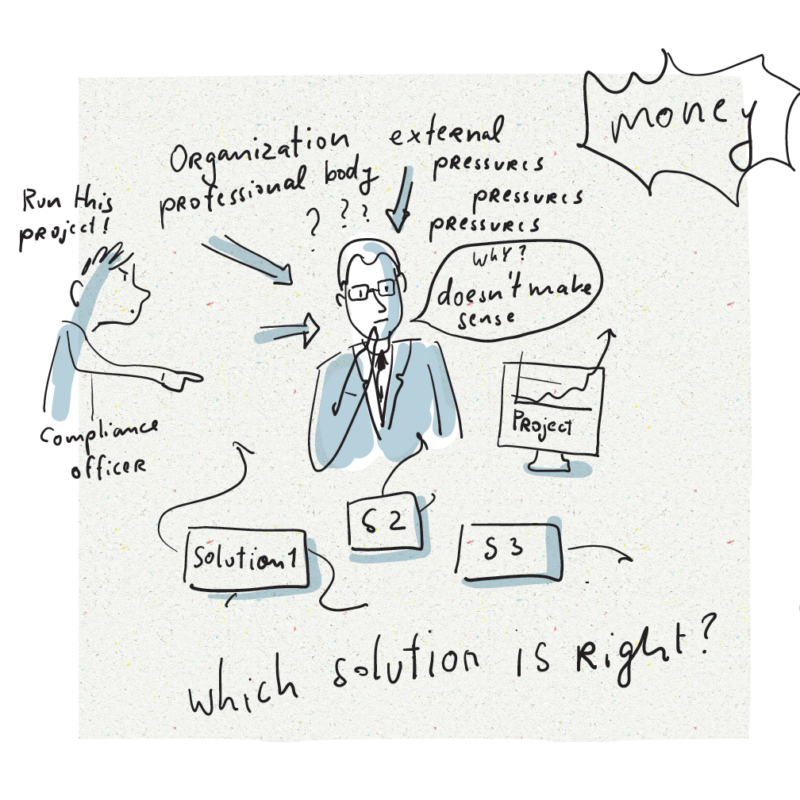 money
Organization
professional body
external
pressures
pressures
pressures
Run this
project!
? ? ?
Why?
doesn't make
sense
Compliance
officer
Project
Solution 1
S 2
S 3
Which solution is right?